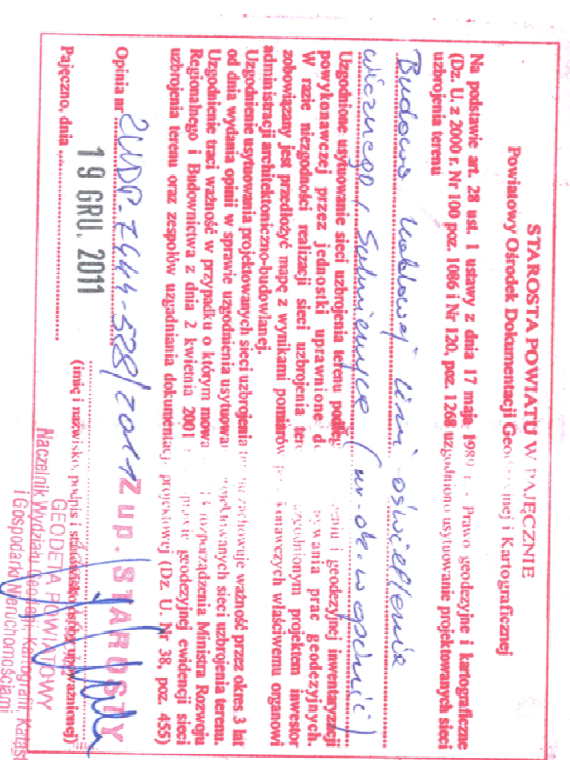 STAROSTA POWIATU W PAJĘCZNIE
Powiatowy Ośrodek Dokumentacji Geodezyjnej i Kartograficznej
Na podstawie art. 28 ust. 1 ustawy z dnia 17 maja 1989 r. - Prawo geodezyjne i kartograficzne
(Dz. U. z 2000 r. Nr 100 poz. 1086 i Nr 120, poz. 1268 uzgodniono usytuowanie projektowanych sieci
uzbrojenia terenu
Budowa kablowej linii oświetlenia
ulicznego, Sulmierzyce
Uzgodnione usytuowanie sieci uzbrojenia terenu i geodezyjnej inwentaryzacji
powykonawczej przez jednostki uprawnione do prac geodezyjnych.
W razie niezgodności realizacji sieci uzbrojenia projektem inwestor
zobowiązany jest przedłożyć mapę z wynikami pomiarów właściwemu organowi
administracji architektoniczno-budowlanej.
Uzgodnienie usytuowania projektowanych sieci uzbrojenia zachowuje ważność przez okres 3 lat
od dnia wydania opinii w sprawie uzgodnienia projektowanych sieci uzbrojenia terenu.
Uzgodnienie traci ważność w przypadku o którym mowa rozporządzenia Ministra Rozwoju
Regionalnego i Budownictwa z dnia 2 kwietnia 2001 geodezyjnej ewidencji sieci
uzbrojenia terenu oraz zespołów uzgadniania dokumentacji projektowej (Dz. U. Nr 38, poz. 455)
Opinia nr ZUDP.7444-528/2011
Z up. STAROSTY
Pajęczno, dnia 19 GRU. 2011
(imię i nazwisko, podpis i stanowisko osoby upoważnionej)
GEODETA POWIATOWY
Naczelnik Wydziału Geodezji Kartografii, Katastr
i Gospodarki Nieruchomościami